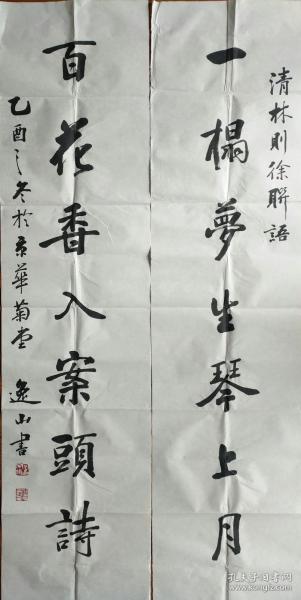 清林则徐聯語
一榻夢生琴上月
百花香入案頭詩
乙酉之冬於京華菊堂 逸山書